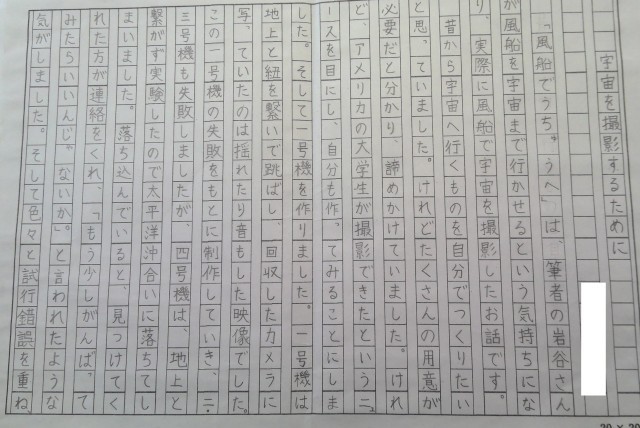 宇宙を撮影するために
「風船でうちゅうへ」は、筆者の岩谷さん
が風船を宇宙まで行かせるという気持ちにな
り、実際に風船で宇宙を撮影したお話です。
昔から宇宙へ行くものを自分でつくりたい
と思っていました。けれどたくさんの用意が
必要だと分かり、諦めかけていました。けれ
ど、アメリカの大学生が撮影できたというニュ
ースを目にし、自分も作ってみることにしま
した。そして一号機を作りました。一号機は
地上と紐を繋いで跳ばし、回収したカメラに
写っていたのは揺れたり音もした映像でした。
この一号機の失敗をもとに制作していき、二・
三号機も失敗しましたが、四号機は、地上と
繋がず実験したので太平洋沖合いに落ちてし
まいました。落ち込んでいると、見つけてく
れた方が連絡をくれ、「もう少しがんばって
みたらいいんじゃないか。」と言われたような
気がしました。そして色々と試行錯誤を重ね、